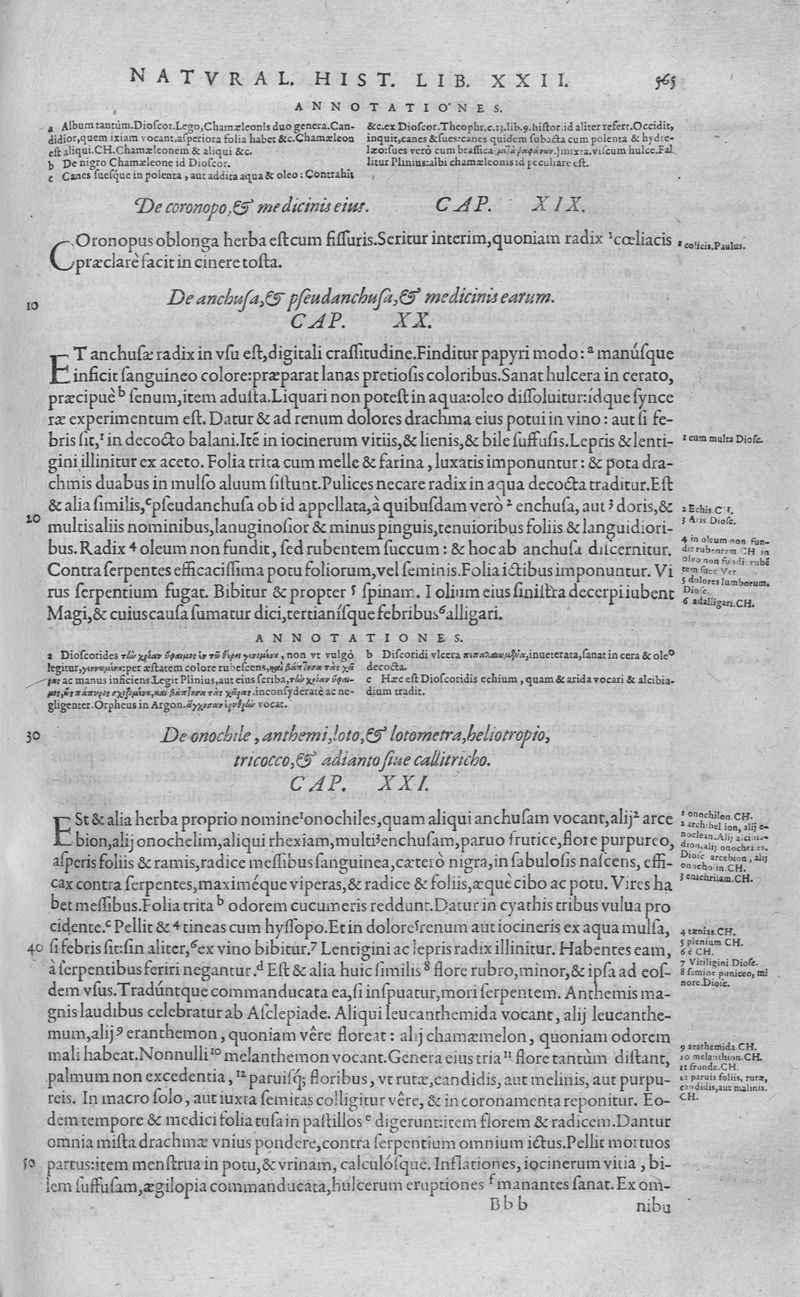 NATVRAL. HIST. LIB. XXII.
565
ANNOTATIONES.
a Album tantùm.Dioscor.Lego,Chamæleonis duo genera.Can-
didior,quem ixiam vocant,asperiora folia habet &c.Chamæleon
est aliqui.CH.Chamæleonem & aliqui &c.
b De nigro Chamæleone id Dioscor.
c Canes suesque in polenta, aut addita aqua & oleo: Contrahit
&c.ex Dioscor.Theophr.c.13.lib.9.histor.id aliter refert.Occidit,
inquit,canes & sues:canes quidem subacta cum polenta & hydre-
læo:sues verò cum brassica mixta.viscum hulce.Fal
litur Plinius:albi chamæleonis id peculiare est.
De coronopo,& medicinis eius. CAP. XIX.
COronopus oblonga herba est cum fissuris.Seritur interim,quoniam radix ¹cœliacis
præclarè facit in cinere tosta.
1 colicis.Paulus.
10
De anchusa,& pseudanchusa,& medicinis earum.
CAP. XX.
ET anchusæ radix in vsu est,digitali crassitudine.Finditur papyri modo: ª manúsque
inficit sanguineo colore:præparat lanas pretiosis coloribus.Sanat hulcera in cerato,
præcipuè ᵇ senum,item adusta.Liquari non potest in aqua:oleo dissoluitur:ídque synce
ræ experimentum est. Datur & ad renum dolores drachma eius potui in vino: aut si fe-
bris sit,¹ in decocto balani.Itē in iocinerum vitiis,& lienis,& bile suffusis.Lepris & lenti-
gini illinitur ex aceto. Folia trita cum melle & farina, luxatis imponuntur: & pota dra-
chmis duabus in mulso aluum sistunt.Pulices necare radix in aqua decocta traditur.Est
& alia similis,ᶜpseudanchusa ob id appellata,à quibusdam verò ² enchusa, aut ³ doris,&
20
multis aliis nominibus,lanuginosior & minus pinguis,tenuioribus foliis & languidiori-
bus. Radix ⁴ oleum non fundit, sed rubentem succum: & hoc ab anchusa discernitur.
Contra serpentes efficacissima potu foliorum,vel seminis.Folia ictibus imponuntur. Vi
rus serpentium fugat. Bibitur & propter ⁵ spinam. Folium eius sinistra decerpi iubent
Magi,& cuius causa sumatur dici,tertianísque febribus⁶alligari.
1 cum mulsa Diosc.
2 Echis.CH.
3 Aris Diosc.
4 in oleum non fun-
dit rubentem CH in
oleo non fundi rubē
tem succ Vet
5 dolores lumborum.
Diosc.
6 adalligari.CH.
ANNOTATIONES.
a Dioscorides , non vt vulgò
legitur,:per æstatem colore rubescens,
ac manus inficiens.Legit Plinius,aut eius scriba,
.inconsyderatè ac ne-
gligenter.Orpheus in Argon. vocat.
b Discoridi vlcera ,inueterata,sanat in cera & oleo
decocta.
c Hæc est Dioscoridis echium, quam & arida vocari & alcibia-
dium tradit.
30
De onochile, anthemi,loto,& lotometra,heliotropio,
tricocco,& adianto siue callitricho.
CAP. XXI.
ESt & alia herba proprio nomine¹onochiles,quam aliqui anchusam vocant,alij² arce
bion,alij onochelim,aliqui rhexiam,multi³enchusam,paruo frutice,flore purpureo,
asperis foliis & ramis,radice messibus sanguinea,cæterò nigra,in sabulosis nascens, effi-
cax contra serpentes,maximéque viperas,& radice & foliis,æquè cibo ac potu. Vires ha
bet messibus.Folia trita ᵇ odorem cucumeris reddunt.Datur in cyathis tribus vulua pro
cidente.ᶜ Pellit & ⁴ tineas cum hyssopo.Et in dolore⁵renum aut iocineris ex aqua mulsa,
40
si febris sit:sin aliter,⁶ex vino bibitur.⁷ Lentigini ac lepris radix illinitur. Habentes eam,
à serpentibus feriri negantur.ᵈ Est & alia huic similis ⁸ flore rubro,minor,& ipsa ad eos-
dem vsus.Tradúntque commanducata ea,si inspuatur,mori serpentem. Anthemis ma-
gnis laudibus celebratur ab Asclepiade. Aliqui leucanthemida vocant, alij leucanthe-
mum,alij ⁹ eranthemon, quoniam vêre floreat: alij chamæmelon, quoniam odorem
mali habeat.Nonnulli¹⁰ melanthemon vocant.Genera eius tria ¹¹ flore tantùm distant,
palmum non excedentia, ¹² paruisq́; floribus, vt rutæ,candidis, aut melinis, aut purpu-
reis. In macro solo, aut iuxta semitas colligitur vêre, & in coronamenta reponitur. Eo-
dem tempore & medici folia tusa in pastillos ᵉ digerunt:item florem & radicem.Dantur
omnia mista drachmæ vnius pondere,contra serpentium omnium ictus.Pellit mortuos
50
partus:item menstrua in potu,& vrinam, calculósque. Inflationes, iocinerum vitia, bi-
lem suffusam,ægilopia commanducata,hulcerum eruptiones ᶠ manantes sanat. Ex om-
1 onochilon.CH.
2 archebel ion, alij o-
noclean.Alij alcibia-
dion,alij onocheles.
Diosc arcebion, alij
onochoin.CH.
3 enichrisam.CH.
4 tænias.CH.
5 plenium CH.
6 è CH.
7 Vitiligini Diosc.
8 semine puniceo, mi
nore.Diosc.
9 arathemida.CH.
10 melanthion.CH.
11 fronde.CH.
12 paruis foliis, rutæ,
candidis,aut malinis.
CH.
Bbb
nibu